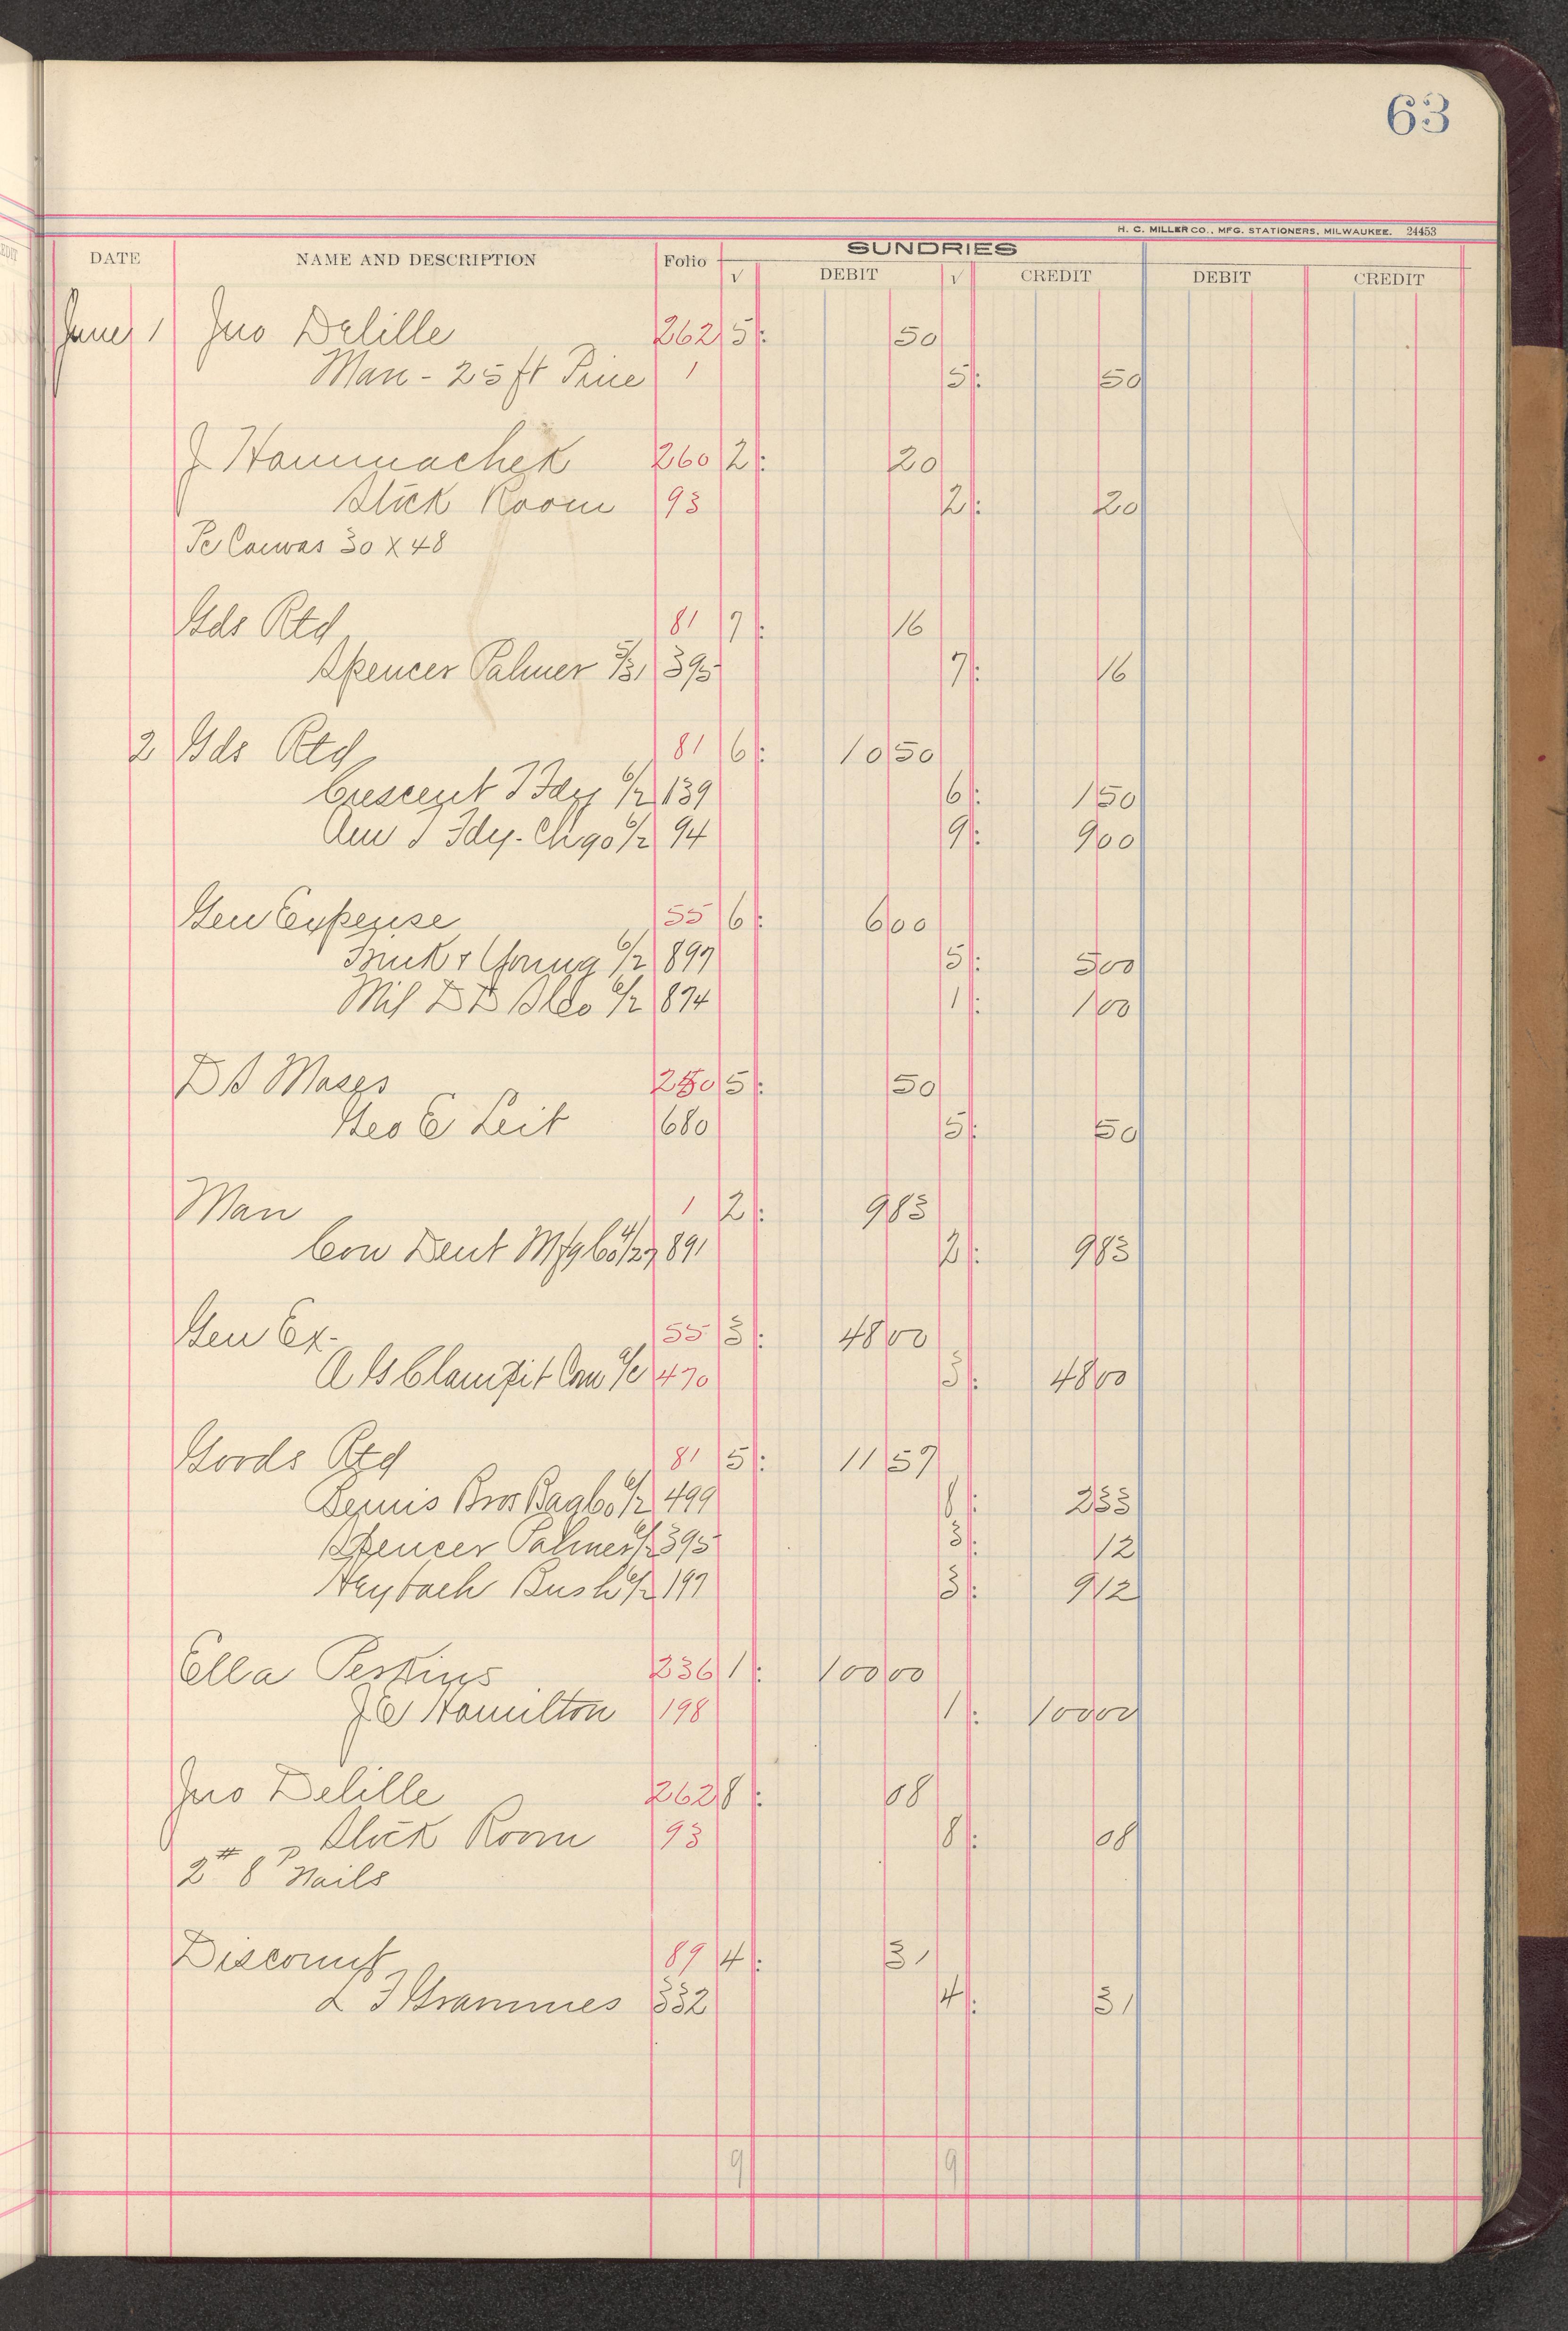 63
H. C. MILLER CO., MFG. STATIONERS, MILWAUKEE. 24453
SUNDRIES
DATE NAME AND DESCRIPTION Folio √ DEBIT √ CREDIT DEBIT CREDIT
June 1 Jno Delille 262 5 : 50
Man - 25 ft Pine 1 5 : 50
J Hammachek 260 2 : 20
Stock Room 93 2 : 20
Pc Canvas 30 X 48
Gds Rtd 81 7 : 16
Spencer Palmer 5/31 395 7 : 16
2 Gds Rtd 81 6 : 10 50
Crescent T Fdy 6/2 139 6 : 1 50
Am T Fdy - Chgo 6/2 94 9 : 9 00
Gen Expense 55 6 : 6 00
& Young 6/2 899 5 : 5 00
Mil 6/2 874 1 : 1 00
D S Moses 250 5 : 50
Geo E Leit 680 5 : 50
Man 1 2 : 9 83
Con Dent Mfg Co 891 2 : 9 83
Gen Ex - 55 3 : 48 00
A G Clampit 470 3 : 48 00
Goods Rtd 81 5 : 11 57
Bemis Bros Bag Co 6/2 499 8 : 2 33
Spencer Palmer 6/2 395 3 : 12
Heybach Bush 6/2 197 3 : 9 12
Ella Perkins 236 1 : 100 00
J E Hamilton 198 1 : 100 00
Jno Delille 262 8 : 08
Stock Room 93 8 : 08
2 # 8 P Nails
Discount 89 4 : 31
L F Grammes 332 4 : 31
9 9